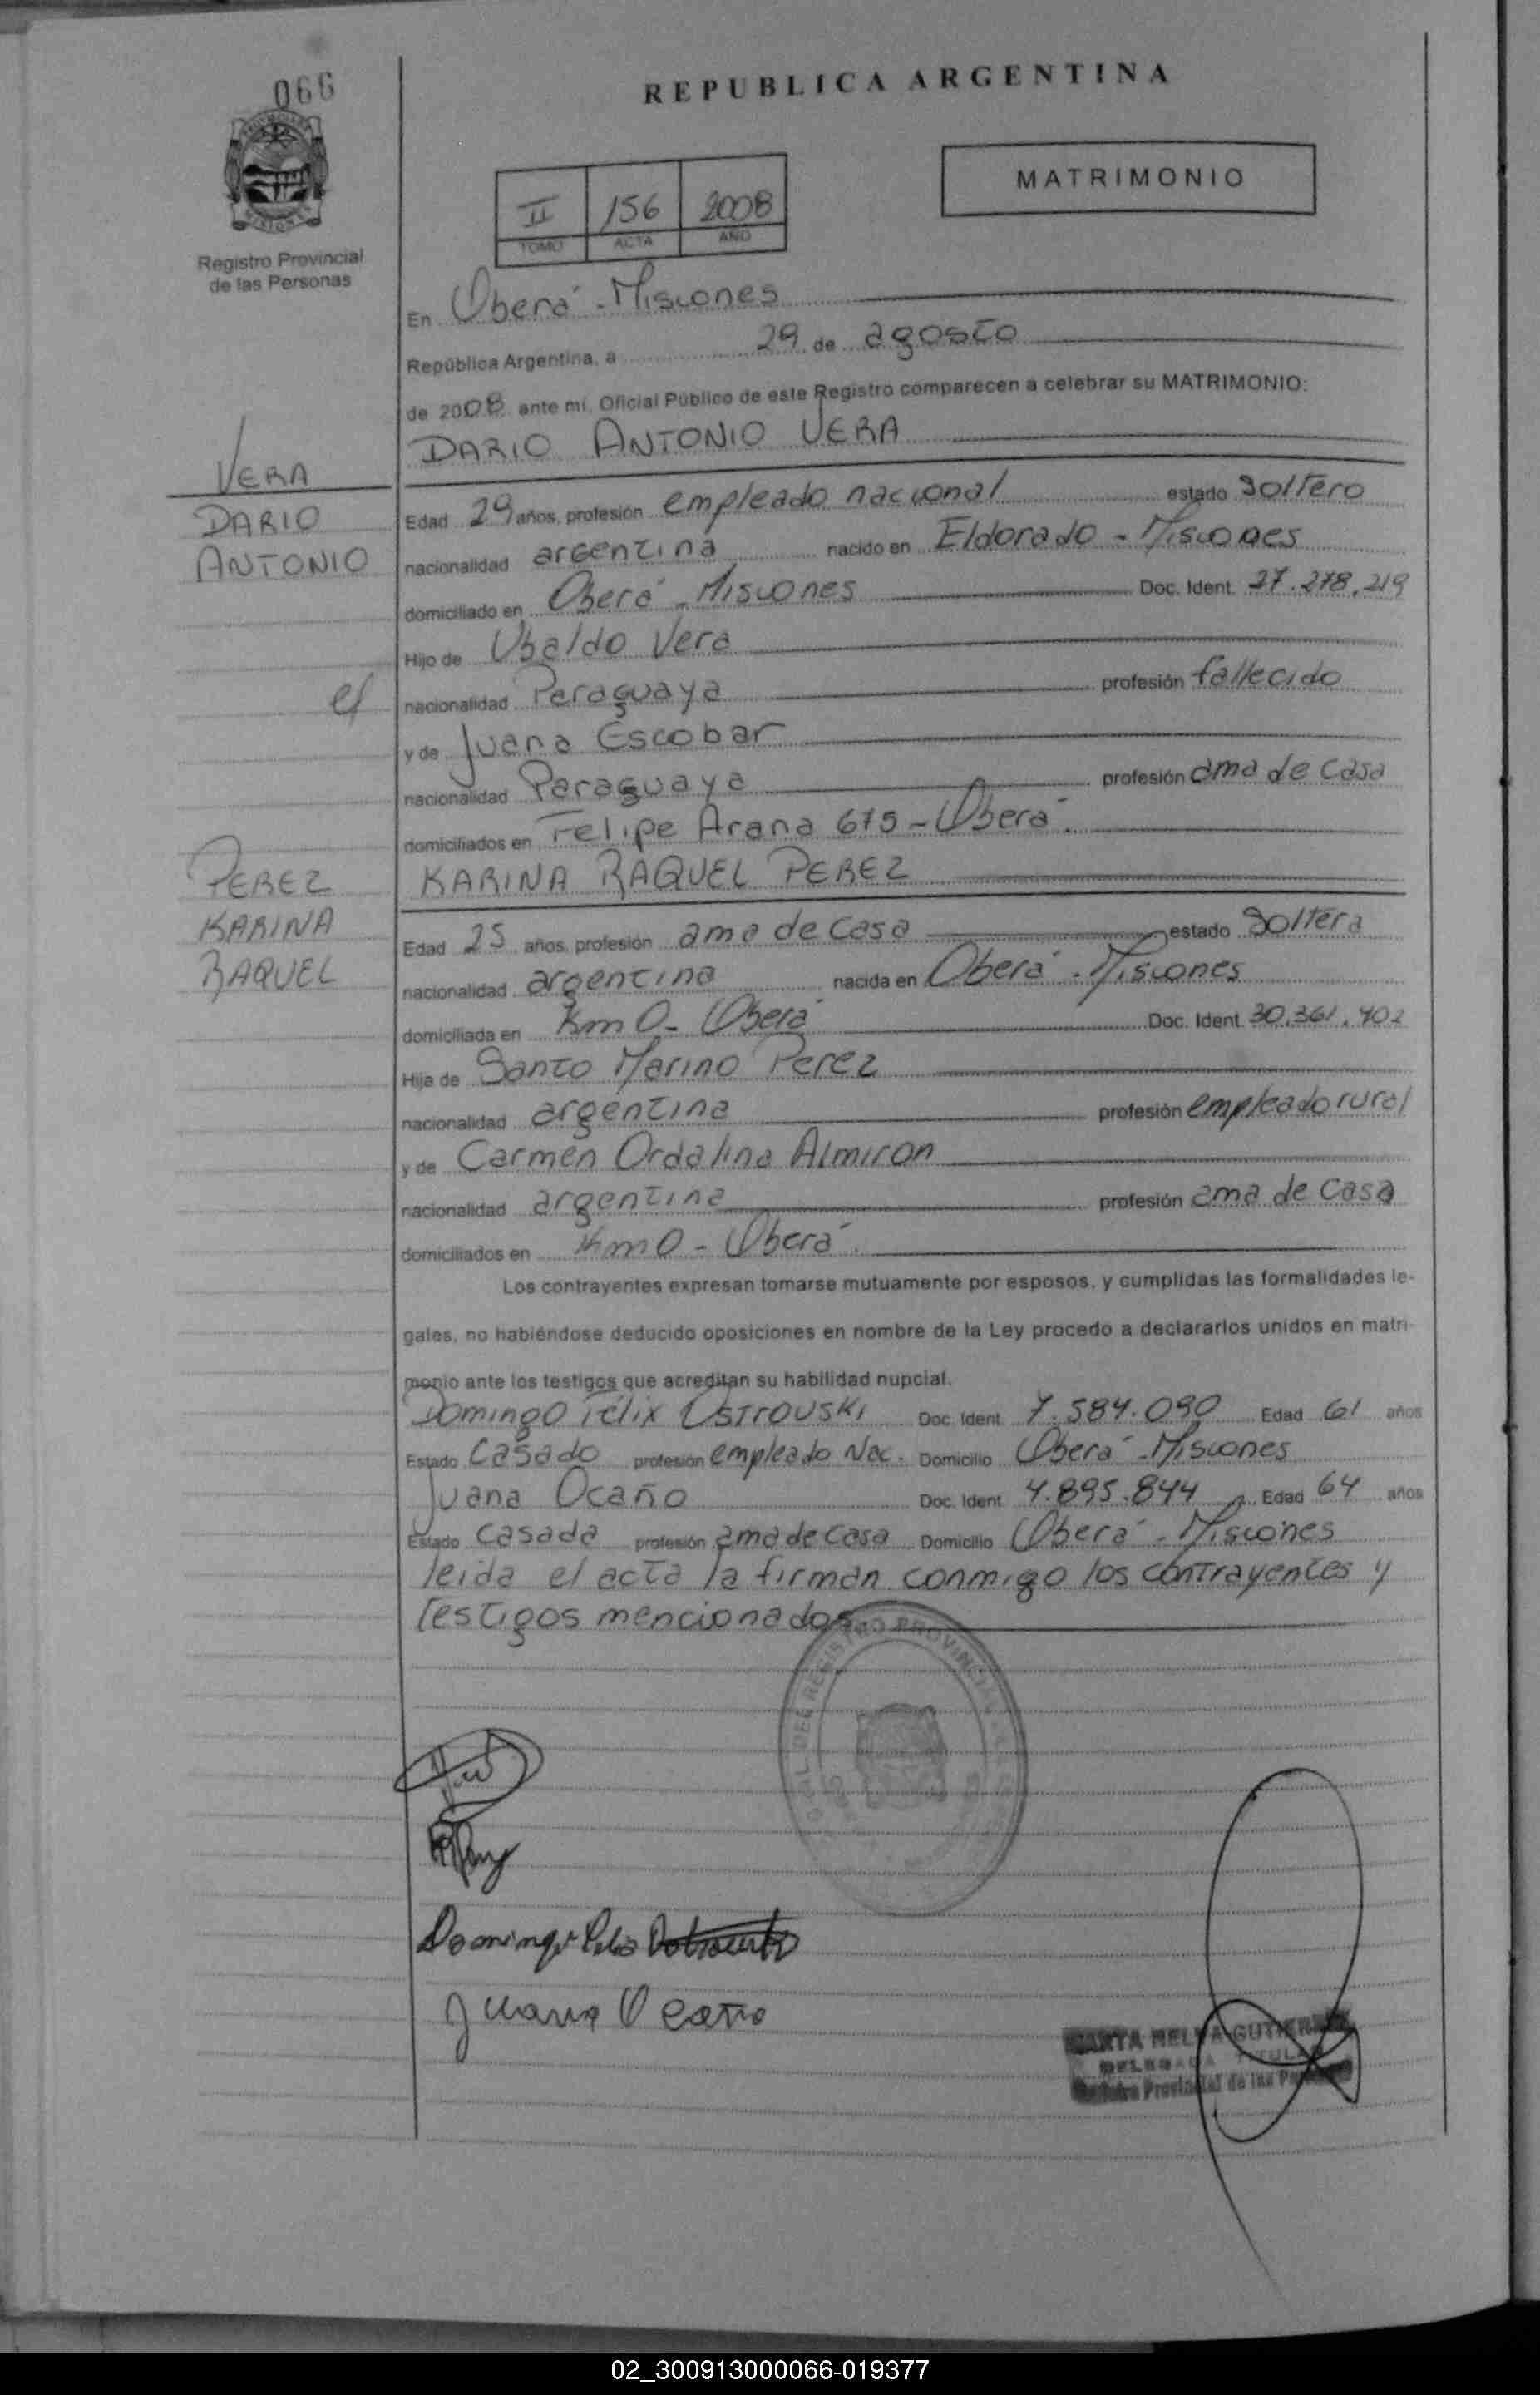 066
REPUBLICA ARGENTINA
MATRIMONIO
II 156 2008
TOMO ACTA AÑO
Registro Provincial
de las Personas
En Oberá - Misiones
República Argentina, a 29 de agosto
de 2008 ante mí, Oficial Público de este Registro comparecen a celebrar su MATRIMONIO:
DARIO ANTONIO VERA
VERA
DARIO
ANTONIO
Edad 29 años, profesión empleado nacional estado Soltero
nacionalidad argentina nacido en Eldorado - Misiones
domiciliado en Oberá - Misiones Doc. Ident. 27.278.219
Hijo de Ubaldo Vera
nacionalidad Paraguaya profesión fallecido
y de Juana Escobar
nacionalidad Paraguaya profesión ama de casa
domiciliados en Felipe Arana 675 - Oberá.
KARINA RAQUEL PEREZ
PEREZ
KARINA
RAQUEL
Edad 25 años, profesión ama de casa estado Soltera
nacionalidad argentina nacida en Oberá - Misiones
domiciliada en Km 0 - Oberá Doc. Ident. 30.361.402
Hija de Santo Marino Perez
nacionalidad argentina profesión empleado rural
y de Carmen Ordalina Almiron
nacionalidad argentina profesión ama de casa
domiciliados en Km 0 - Oberá.
Los contrayentes expresan tomarse mutuamente por esposos, y cumplidas las formalidades le-
gales, no habiéndose deducido oposiciones en nombre de la Ley procedo a declararlos unidos en matri-
monio ante los testigos que acreditan su habilidad nupcial.
Domingo Félix Ostrouski Doc. Ident. 7.584.090 Edad 61 años
Estado Casado profesión empleado Nac. Domicilio Oberá - Misiones
Juana Ocaño Doc. Ident. 4.895.844 Edad 64 años
Estado Casada profesión ama de casa Domicilio Oberá - Misiones
leida el acta la firman conmigo los contrayentes y
testigos mencionados
DEL REGISTRO PROVINCIAL
Juana Ocaño
MARTA NELVA GUTIERREZ
DELEGADA TITULAR
Registro Provincial de las Personas
02_300913000066-019377